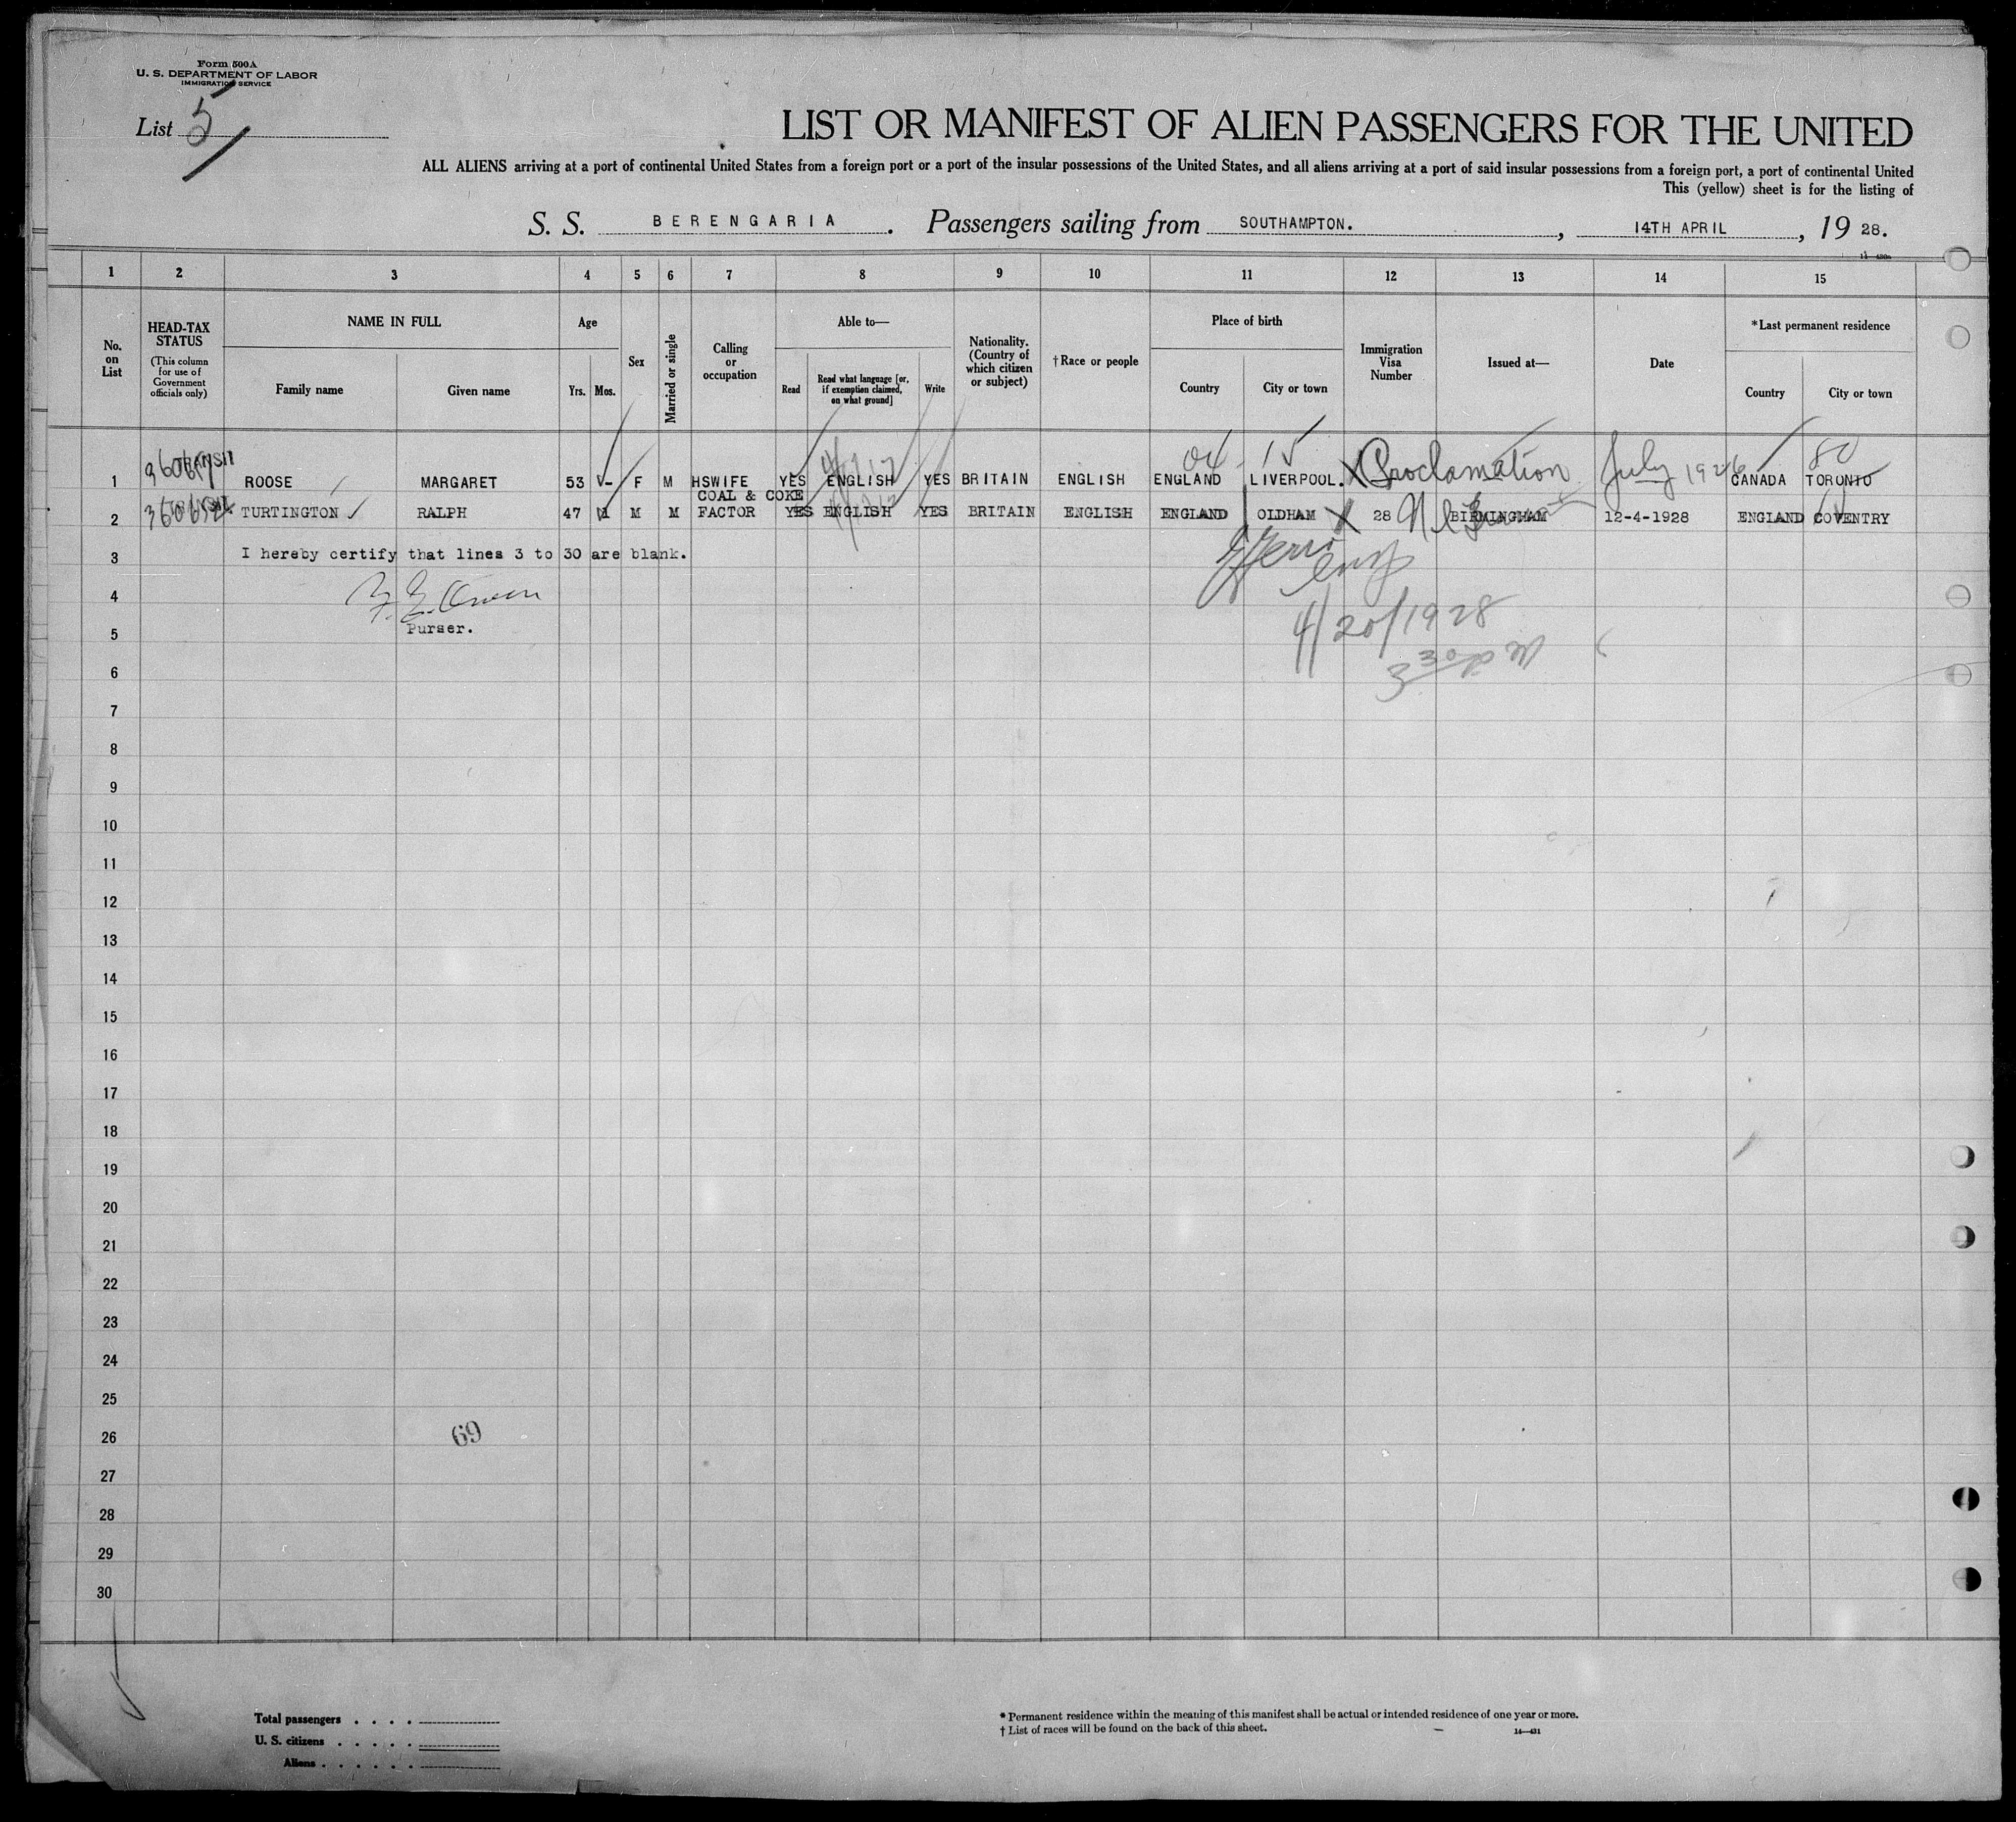 Form 500A
U. S. DEPARTMENT OF LABOR
IMMIGRATION SERVICE
List 5
LIST OR MANIFEST OF ALIEN PASSENGERS FOR THE UNITED
ALL ALIENS arriving at a port of continental United States from a foreign port or a port of the insular possessions of the United States, and all aliens arriving at a port of said insular possessions from a foreign port, a port of continental United
This (yellow) sheet is for the listing of
S. S. BERENGARIA. Passengers sailing from SOUTHAMPTON., 14TH APRIL, 19 28.
1 2 3 4 5 6 7 8 9 10 11 12 13 14 15
No. on List
HEAD-TAX STATUS
(This column for use of Government officials only)
NAME IN FULL
Family name
Given name
Age
Yrs. Mos.
Sex
Married or single
Calling or occupation
Able to—
Read
Read what language [or, if exemption claimed, on what ground]
Write
Nationality. (Country of which citizen or subject)
†Race or people
Place of birth
Country
City or town
Immigration Visa Number
Issued at—
Date
*Last permanent residence
Country
City or town
1 TRANSIT ROOSE MARGARET 53 - F M HSWIFE YES ENGLISH YES BRITAIN ENGLISH ENGLAND LIVERPOOL. Proclamation July 1926 CANADA TORONTO
COAL & COKE
2 TURTINGTON RALPH 47 M M FACTOR YES ENGLISH YES BRITAIN ENGLISH ENGLAND OLDHAM 28 BIRMINGHAM 12-4-1928 ENGLAND COVENTRY
3 I hereby certify that lines 3 to 30 are blank.
4
Purser.
4/20/1928
5
6
7
8
9
10
11
12
13
14
15
16
17
18
19
20
21
22
23
24
25
26
69
27
28
29
30
Total passengers . . . .
U. S. citizens . . . . .
Aliens . . . . . .
* Permanent residence within the meaning of this manifest shall be actual or intended residence of one year or more.
† List of races will be found on the back of this sheet.
14—431